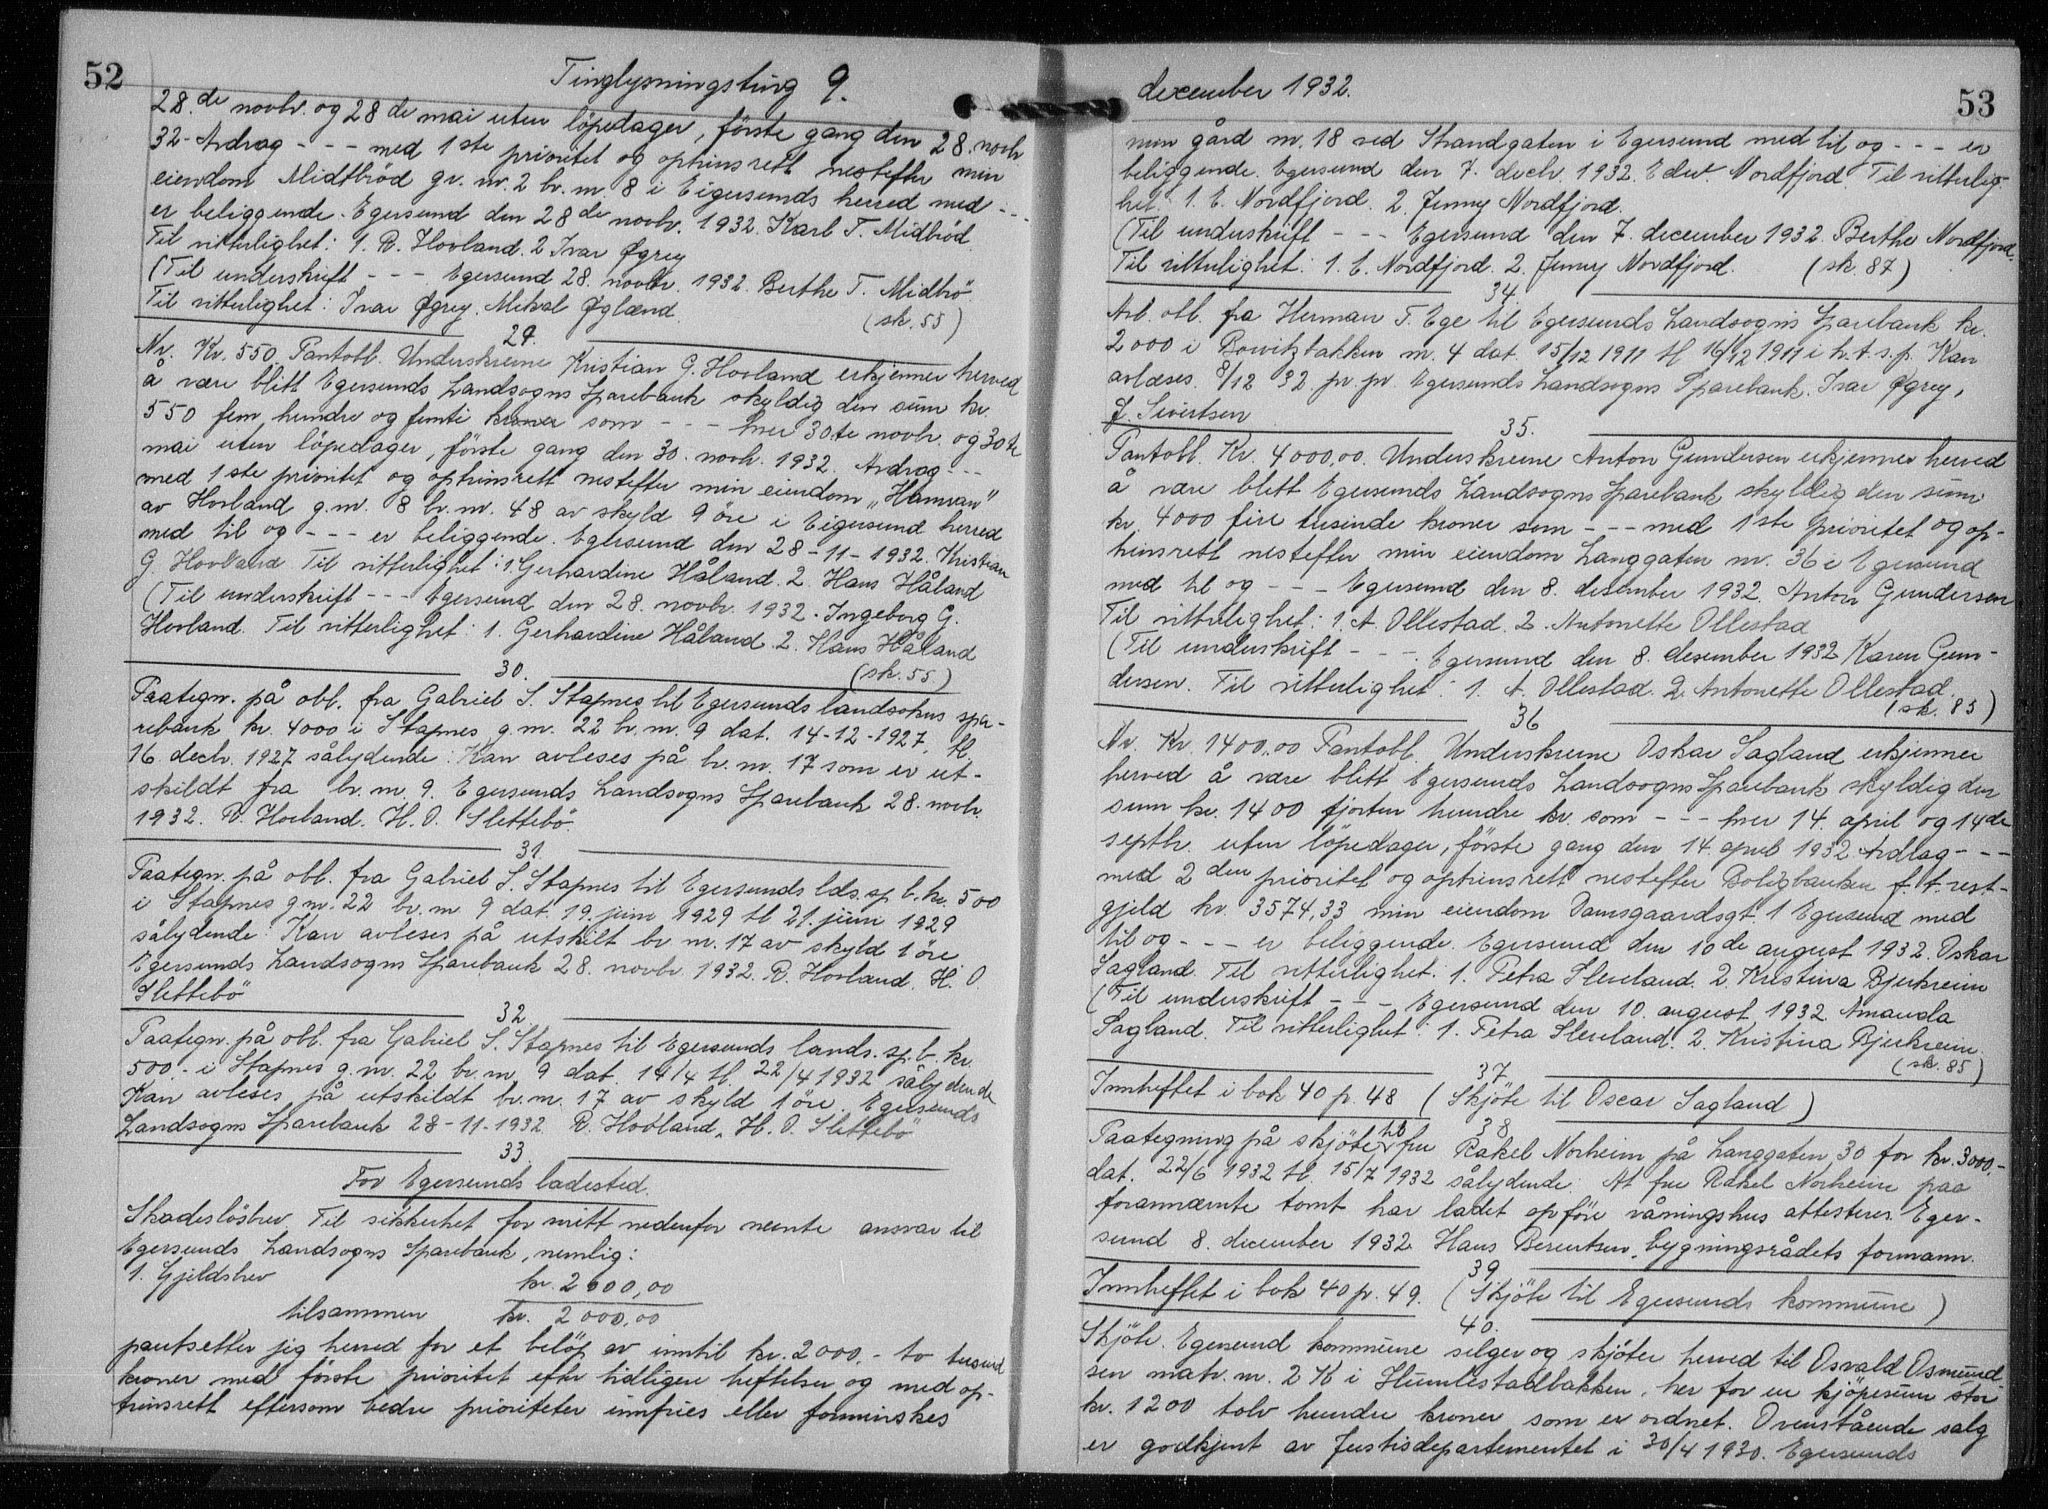 52
Tinglysningsting 9.
28.de novbr. og 28de mai uten löpedager, förste gang den 28. novbr
32- Avdrag - - - med 1ste prioritet og optrinsrett nestefter min
eiendom Midtbröd gr. nr. 2 br. nr. 8 i Eigersunds herred med - - -
er beliggende. Egersund den 28de novbr. 1932. Karl T. Midbröd.
Til vitterlighet: 1. R. Hovland. 2 Ivar Øgrey
(Til underskrift - - - Egersund 28. novbr. 1932. Berthe T. Midbrö.
Til vitterlighet: Ivar Øgrey. Mikal Øglænd. (sk. 55)
29.
Nr. Kr. 550. Pantobl. Underskrevne Kristian G. Hovland erkjenner herved
å være blitt Egersunds Landsogns Sparebank skyldig den sum kr.
550 fem hundre og femti kroner som - - - hver 30.te novbr. og 30te
mai uten löpedager, förste gang den 30. novbr. 1932. Avdrag - - -
med 1ste prioritet og optrinsrett nestefter min eiendom „Hamran"
av Hovland g.nr. 8 br. nr. 48 av skyld 9 öre i Eigersund herred
med til og - - - er beliggende. Egersund den 28-11-1932. Kristian
G. Hovland. Til vitterlighet: 1. Gerhardine Håland. 2. Hans Håland
(Til underskrift - - - Egersund den 28. novbr. 1932. Ingeborg G.
Hovland. Til vitterlighet: 1. Gerhardine Håland. 2. Hans Håland
(sk. 55)
30.
Paategn. på obl. fra Gabriel S. Stapnes til Egersunds landsokns spa-
rebank kr. 4000 i Stapnes g.nr. 22 br. nr. 9 dat. 14-12-1927, tl.
16 decbr. 1927 sålydende: Kan avleses på br. nr. 17 som er ut-
skildt fra br. nr. 9. Egersunds Landsogns Sparebank 28. novbr.
1932. R. Hovland. H. O. Slettebö.
31.
Paategn. på obl. fra Gabriel S. Stapnes til Egersunds lds. sp. b. kr. 500
i Stapnes g nr. 22 br. nr. 9 dat. 19. juni 1929 tl 21. juni 1929
sålydende: Kan avleses på utskilt br nr. 17 av skyld 1 öre
Egersunds Landsogns Sparebank 28. novbr. 1932. R. Hovland. H. O.
Slettebö
32
Paategn. på obl. fra Gabriel S. Stapnes til Egersunds lands. sp. b. kr.
500.- i Stapnes g. nr. 22 br. nr. 9 dat. 14/4 tl. 22/4 1932 sålydende
Kan avleses på utskildt br. nr. 17 av skyld 1 öre. Egersunds
Landsogns Sparebank 28-11-1932 R. Hovland. H. O. Slettebö
33.
For Egersunds ladested.
Skadeslösbrev. Til sikkerhet for mitt nedenfor nevnte ansvar til
Egersunds Landsogns Sparebank, nemlig:
1. Gjeldsbrev kr. 2000,00
tilsammen kr. 2000,00
pantsetter jeg herved for et belöp av inntil kr. 2000.- to tusind
kroner med förste prioritet efter tidligere heftelser og med op-
trinsrett eftersom bedre prioriteter innfries eller forminskes
december 1932.
53
min gård nr. 18 ved Strandgaten i Egersund med til og - - - er
beliggende. Egersund den 7. decbr. 1932. Edw. Nordfjord. Til vitterlig-
het: 1. E. Nordfjord. 2. Jenny Nordfjord.
(Til underskrift - - - Egersund den 7. december 1932. Berthe Nordfjord.
Til vitterlighet: 1. E. Nordfjord. 2. Jenny Nordfjord. (sk. 87)
34.
Avl. obl. fra Herman T. Ege til Egersunds Landsogns Sparebank kr.
2000 i Bowitzbakken nr. 4 dat. 15/12 1911 tl 16/12 1911 i h.t.s.p. Kan
avlæses. 8/12 32. pr. pr. Egersunds Landsogns Sparebank. Ivar Øgrey,
J. Sivertsen
35.
Pantobl. Kr. 4000,00. Underskrevne Anton Gundersen erkjenner herved
å være blitt Egersunds Landsogns Sparebank skyldig den sum
kr. 4000 fire tusinde kroner som - - - med 1ste prioritet og op-
trinsrett nestefter min eiendom Langgaten nr. 36 i Egersund
med til og - - - Egersund den 8. desember 1932. Anton Gundersen
Til vitterlighet: 1. A. Ollestad. 2. Antonette Ollestad
(Til underskrift - - - Egersund den 8. desember 1932 Karen Gun-
dersen. Til vitterlighet: 1. A. Ollestad. 2. Antonette Ollestad.
(sk. 85)
36
Nr. Kr. 1400,00 Pantobl. Underskrevne Oskar Sagland erkjenner
herved å være blitt Egersunds Landsogns Sparebank skyldig den
sum kr. 1400 fjorten hundre kr. som - - - hver 14. april og 14de
septbr. uten löpedager, förste gang den 14. april 1932 Avdrag - - -
med 2den prioritet og optrinsrett nestefter Boligbanken f. t. rest-
gjeld kr. 3574,33 min eiendom Damsgaardsgt. 1 Egersund med
til og - - - er beliggende. Egersund den 10de august 1932. Oskar
Sagland. Til vitterlighet: 1. Petra Sleveland. 2. Kristina Bjerkreim
(Til underskrift - - - Egersund den 10. august 1932. Amanda
Sagland. Til vitterlighet: 1. Petra Sleveland. 2. Kristina Bjerkreim.
(sk. 85)
37.
Innheftet i bok 40 p. 48 (Skjöte til Oscar Sagland)
38
Paategning på skjöte til fru Rakel Norheim på Langgaten 30 for kr. 3000.-
dat. 22/6 1932 tl. 15/7 1932 sålydende: At fru Rakel Norheim paa
forannævnte tomt har ladet opföre våningshus attesteres. Eger-
sund 8. december 1932. Hans Berentsen, bygningsrådets formann.
39
Innheftet i bok 40 p. 49. (Skjöte til Egersunds kommune)
40.
Skjöte. Egersund kommune selger og skjöter herved til Osvald Osmund
sen matr. nr. 2 K i Humlestadbakken, her for en kjöpesum stor
kr. 1200 tolv hundre kroner som er ordnet. Ovenstående salg
er godkjent av Justisdepartementet i 30/4 1930. Egersunds